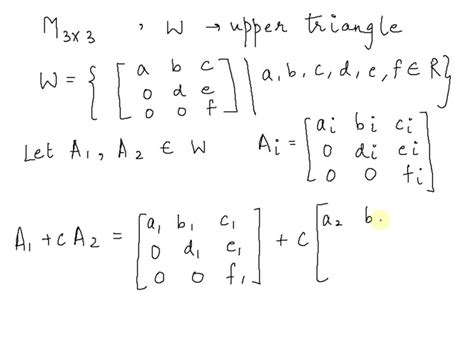 M3×3 , W → upper triangle
W = { [ a b c
0 d e
0 0 f ] | a, b, c, d, e, f ∈ R }
Let A1, A2 ∈ W Ai = [ ai bi ci
0 di ei
0 0 fi ]
A1 + c A2 = [ a1 b1 c1
0 d1 e1
0 0 f1 ] + c [ a2 b